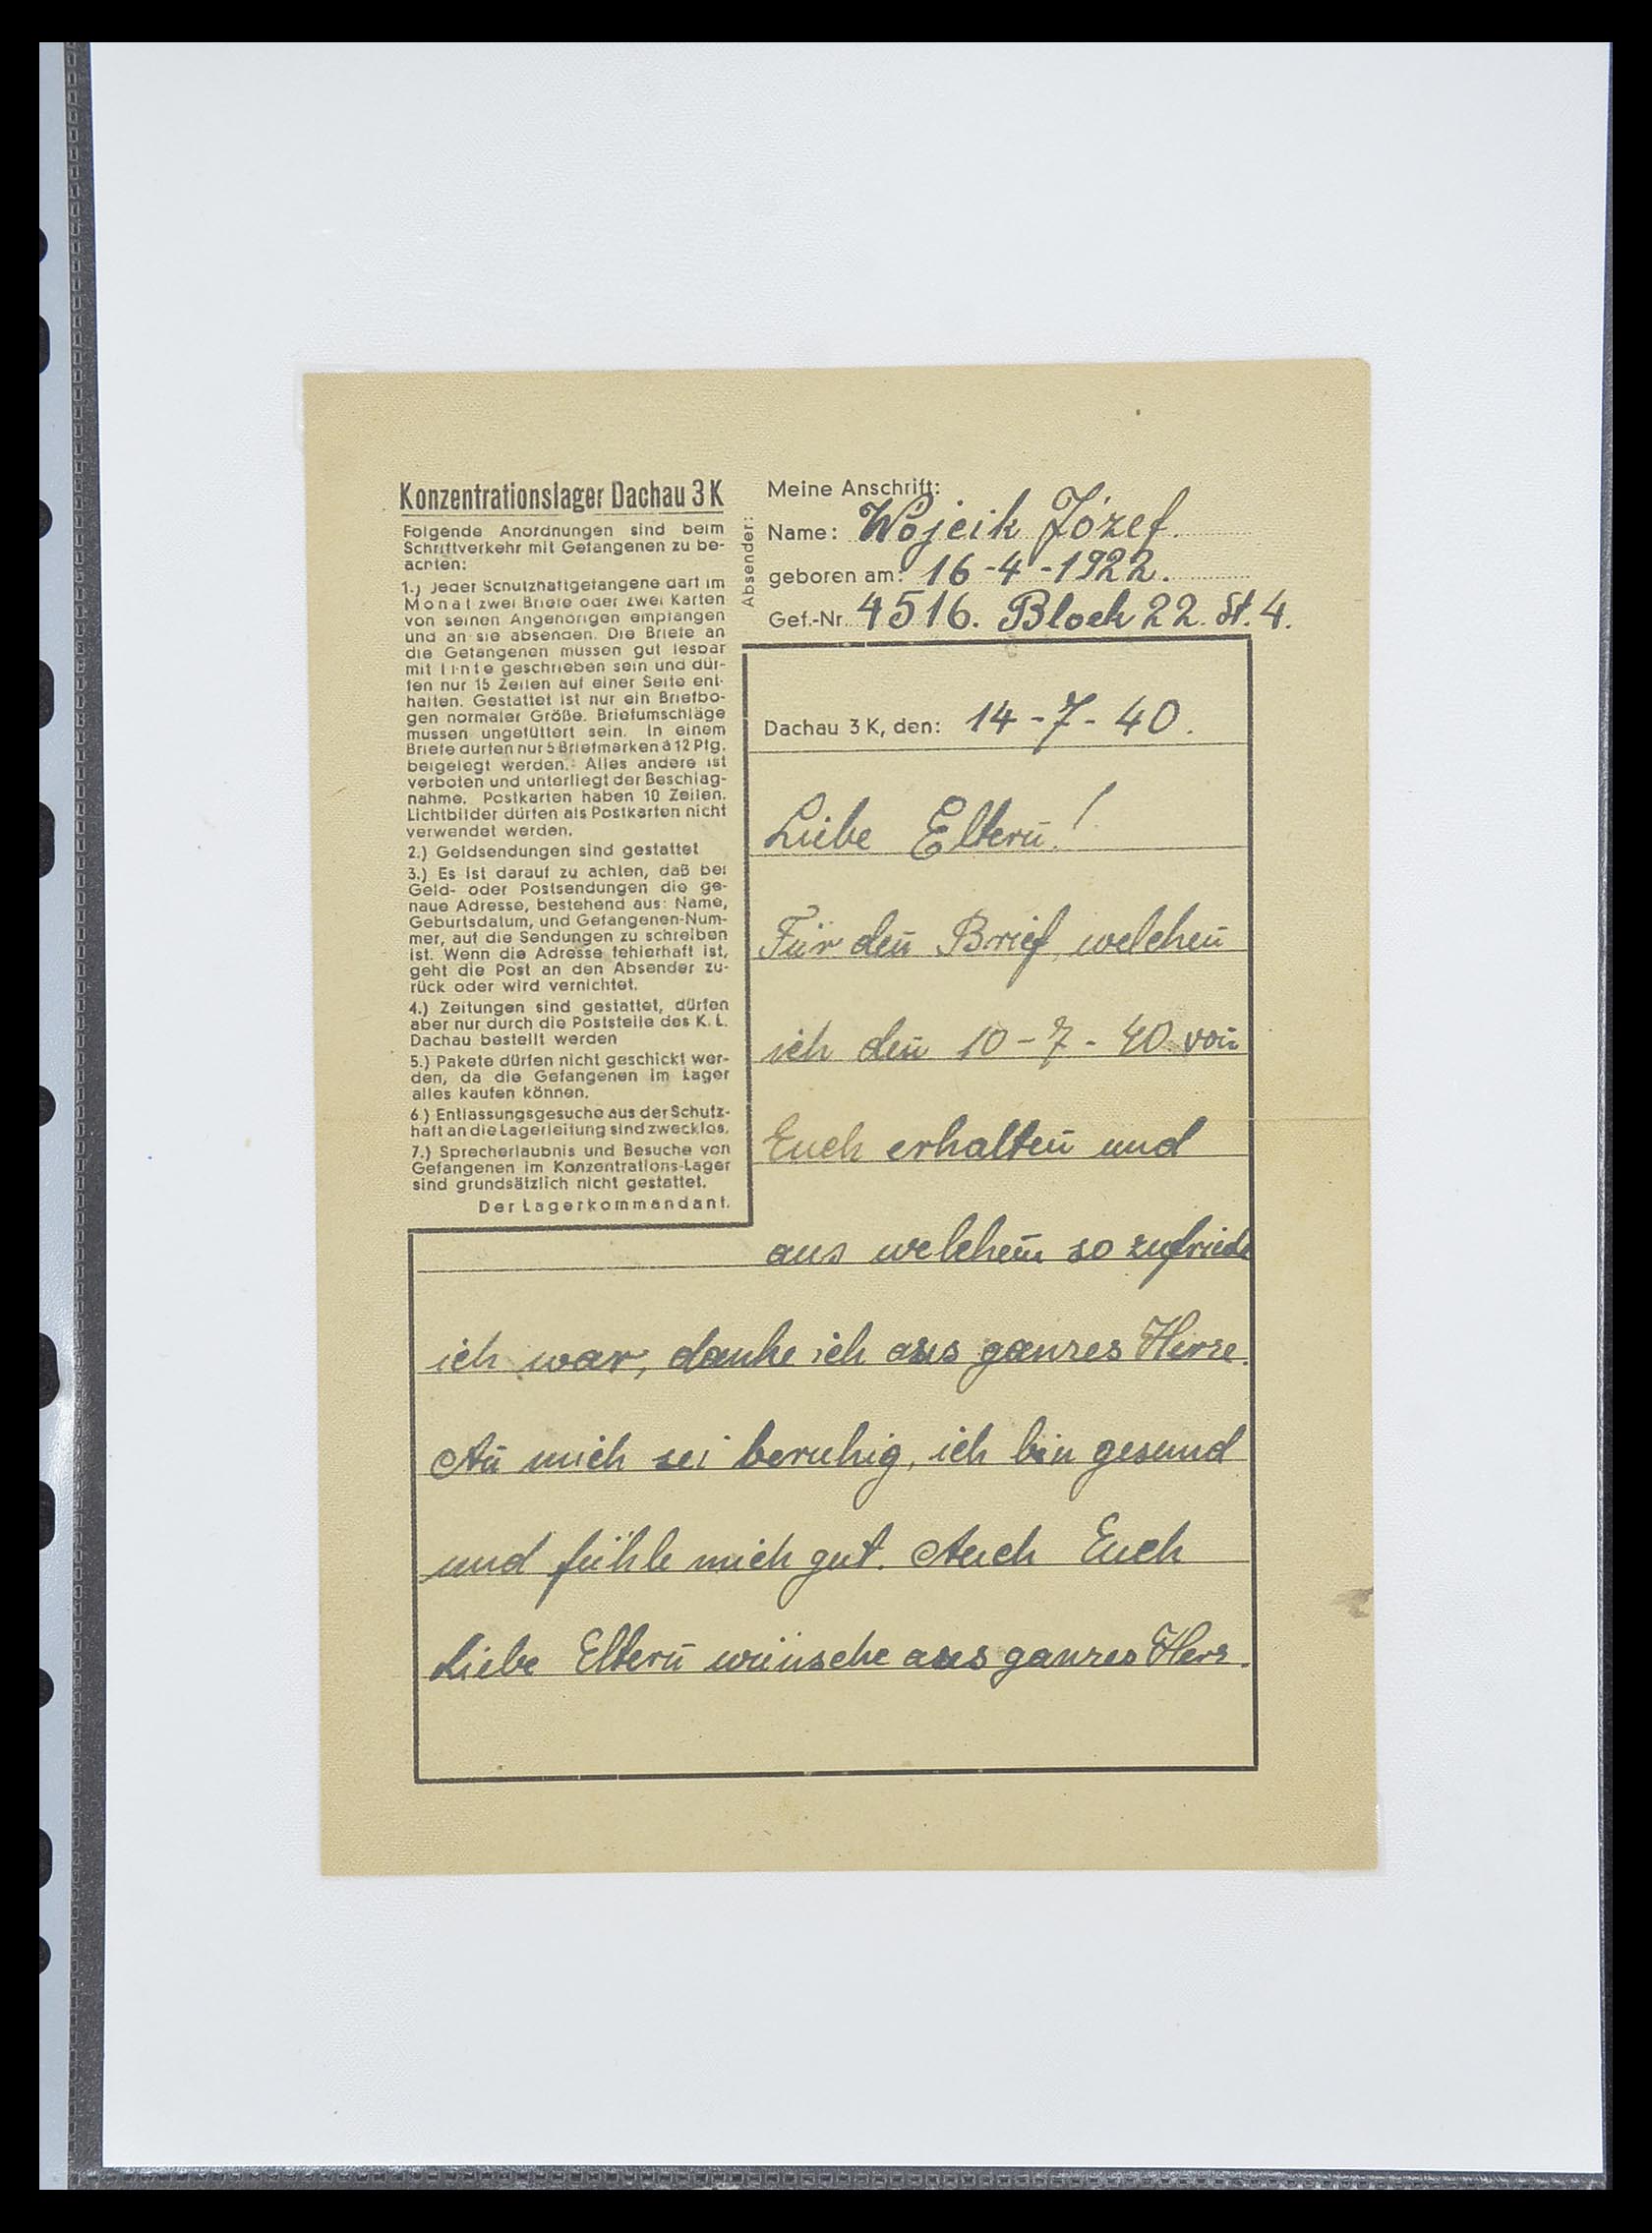 Konzentrationslager Dachau 3 K
Folgende Anordnungen sind beim
Schriftverkehr mit Gefangenen zu be-
achten:
1.) Jeder Schutzhaftgefangene darf im
Monat zwei Briefe oder zwei Karten
von seinen Angehörigen empfangen
und an sie absenden. Die Briefe an
die Gefangenen müssen gut lesbar
mit Tinte geschrieben sein und dür-
fen nur 15 Zeilen auf einer Seite ent-
halten. Gestattet ist nur ein Briefbo-
gen normaler Größe. Briefumschläge
müssen ungefüttert sein. In einem
Briefe dürfen nur 5 Briefmarken à 12 Pfg.
beigelegt werden. Alles andere ist
verboten und unterliegt der Beschlag-
nahme. Postkarten haben 10 Zeilen.
Lichtbilder dürfen als Postkarten nicht
verwendet werden.
2.) Geldsendungen sind gestattet
3.) Es ist darauf zu achten, daß bei
Geld- oder Postsendungen die ge-
naue Adresse, bestehend aus: Name,
Geburtsdatum, und Gefangenen-Num-
mer, auf die Sendungen zu schreiben
ist. Wenn die Adresse fehlerhaft ist,
geht die Post an den Absender zu-
rück oder wird vernichtet.
4.) Zeitungen sind gestattet, dürfen
aber nur durch die Poststelle des K. L.
Dachau bestellt werden
5.) Pakete dürfen nicht geschickt wer-
den, da die Gefangenen im Lager
alles kaufen können.
6.) Entlassungsgesuche aus der Schutz-
haft an die Lagerleitung sind zwecklos.
7.) Sprecherlaubnis und Besuche von
Gefangenen im Konzentrations-Lager
sind grundsätzlich nicht gestattet.
Der Lagerkommandant.
Absender:
Meine Anschrift:
Name: Wójcik Józef.
geboren am: 16-4-1922.
Gef.-Nr. 4516. Block 22. St. 4.
Dachau 3 K, den: 14-7-40.
Liebe Eltern!
Für den Brief, welchen
ich den 10-7-40 von
Euch erhalten und
aus welchem so zufriede
ich war, danke ich aus ganzes Herze.
An mich sei beruhig, ich bin gesund
und fühle mich gut. Auch Euch
Liebe Eltern wünsche aus ganzes Herz.